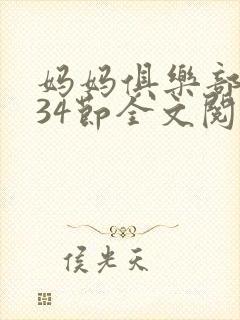 妈妈俱樂部
34節全文閱
侯光天